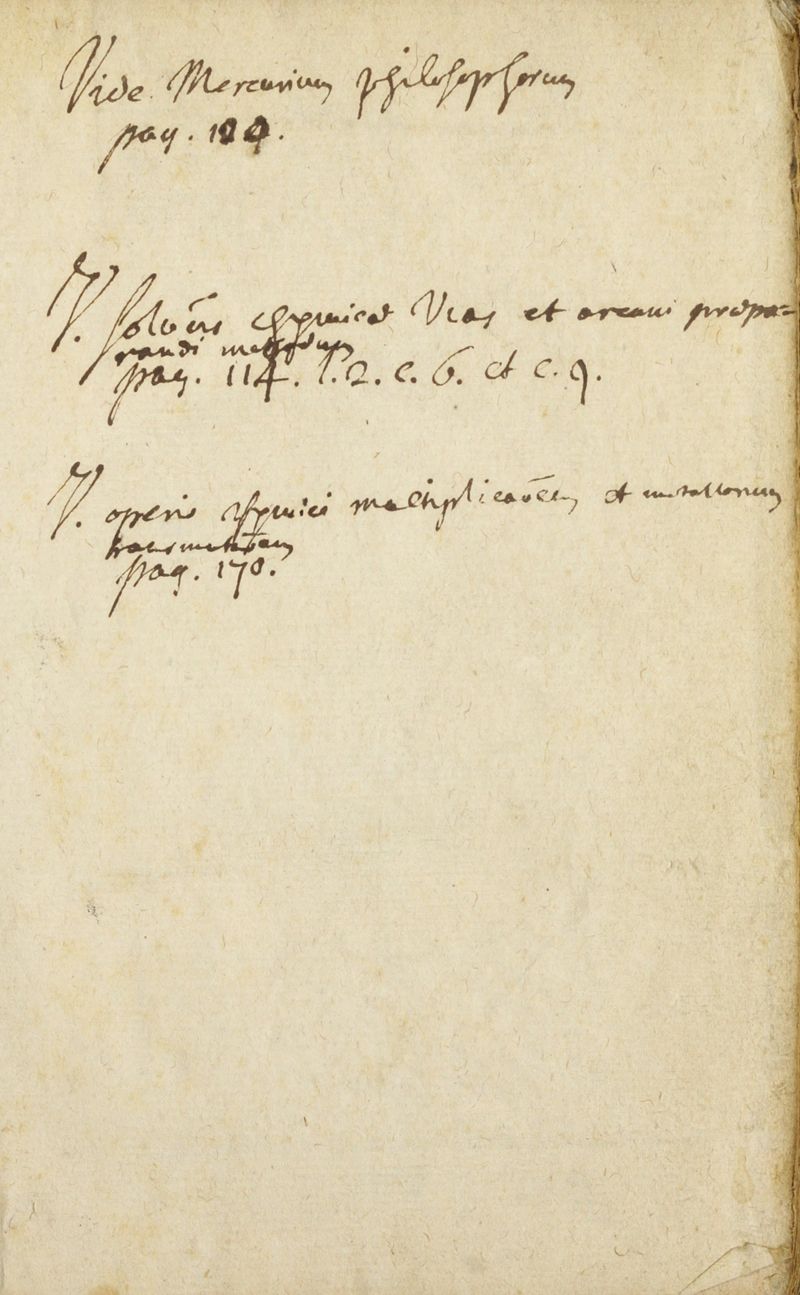 Vide Mercurium philosophorum
pag. 104.
V. solõis chymicæ vias et arcani præpa=
randi methodum
pag. 114. l. 2. c. 6. et c. 9.
V. operis chymici multiplicaõem et metallorum
transmutãõem
pag. 170.